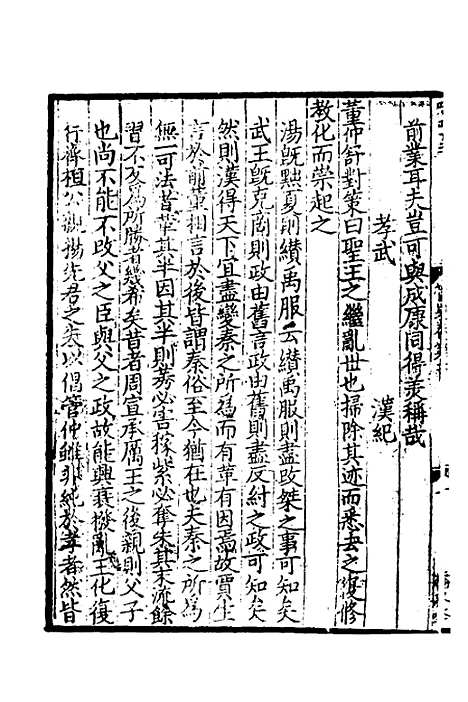 前業耳夫豈可與成康同得美稱哉
孝武　漢紀
董仲舒對策曰聖王之繼亂世也掃除其迹而悉去之復修
教化而崇起之
湯既黜夏則纘禹服云纘禹服則盡改桀之事可知矣
武王既克商則政由舊言政由舊則盡反紂之政可知矣
然則漢得天下宜盡變秦之所為而有革有因焉故賈生
言於前董相言於後皆謂秦俗至今猶在也夫秦之所為
無一可法者革其半因其半則莠必害稼紫必奪朱其末流餘
習不反為所勝者幾希矣昔者周宣承厲王之後親則父子
也尚不能不改父之臣與父之政故能興衰撥亂王化復
行濟祖公觀揚先君之美以倡管仲雖非純於孝者然皆